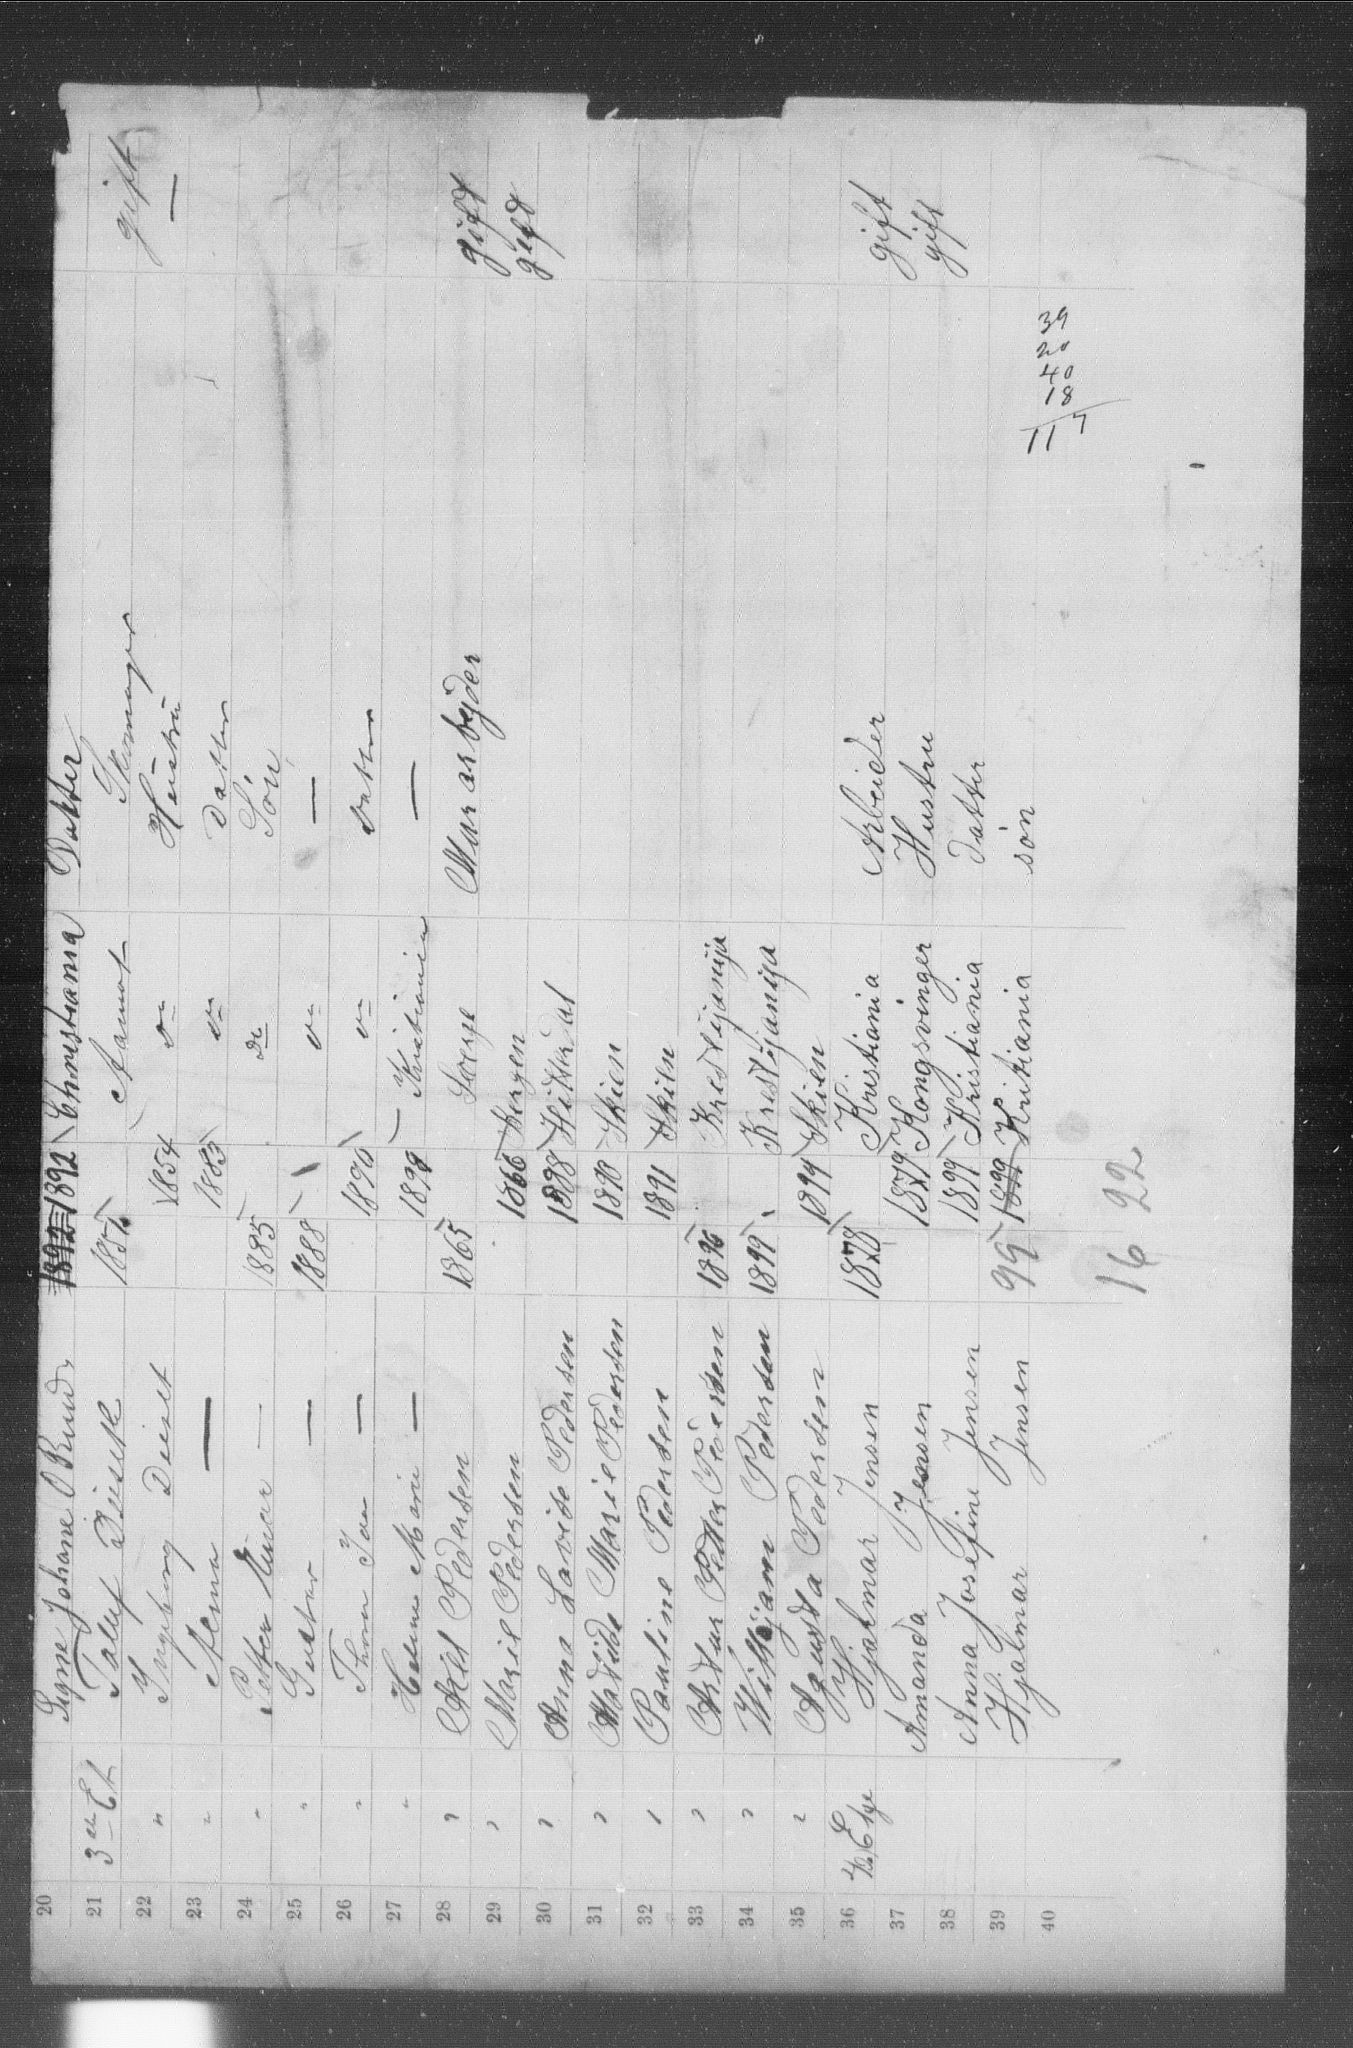 20 Signe Johane Ruud 1892 1892 Christiania Datter
21 3die Et Aamot gift
22 " Ingeborg 1854 do Hustru —
23 " Alma — 1883 do Datter
24 " Petter Einar — 1885 do Søn
25 " Gustav — 1888 do —
26 " — 1890 do Datter
27 " Marie — 1898 Kristiania —
28 " Axel Pedersen 1865 Murarbejder gift
29 " Marie Pedersen 1866 Bergen gift
30 " Anna Lovise Pedersen 1888 Hitterdal
31 " Matilde Marie Pedersen 1890 Skien
32 " Pauline Pedersen 1891 Skien
33 " Artur Petter Pedersen 1896 Krestijanija
34 " Willijam Pedersen 1899 Krestijanija
35 " Agusta Pedersen 1894 Skien
36 4de Etge Hjalmar Jensen 1878 Kristiania Arbeider gift
37 Amanda Jensen 1879 Kongsvinger Hustru gift
38 Anna Josefine Jensen 1899 Kristiania Datter
39 Hjalmar Jensen 99 1899 Kritiania søn
40
16 22
39
20
40
18
117